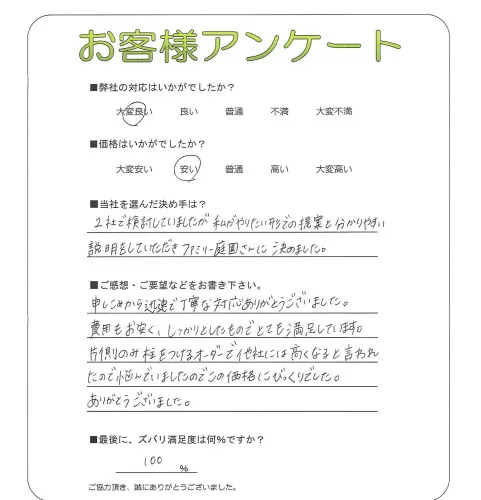 お客様アンケート
■弊社の対応はいかがでしたか？
大変良い 良い 普通 不満 大変不満
■価格はいかがでしたか？
大変安い 安い 普通 高い 大変高い
■当社を選んだ決め手は？
2社で検討していましたが 私がやりたい形での提案と分かりやすい
説明をしていただきファミリー庭園さんに決めました。
■ご感想・ご要望などをお書き下さい。
申しこみから迅速で丁寧な対応ありがとうございました。
費用もお安く、しっかりとしたものでとても満足しています。
片側のみ柱をつけるオーダーで他社には高くなると言われ
たので悩んでいましたのでこの価格にびっくりでした。
ありがとうございました。
■最後に、ズバリ満足度は何％ですか？
100 ％
ご協力頂き、誠にありがとうございました。